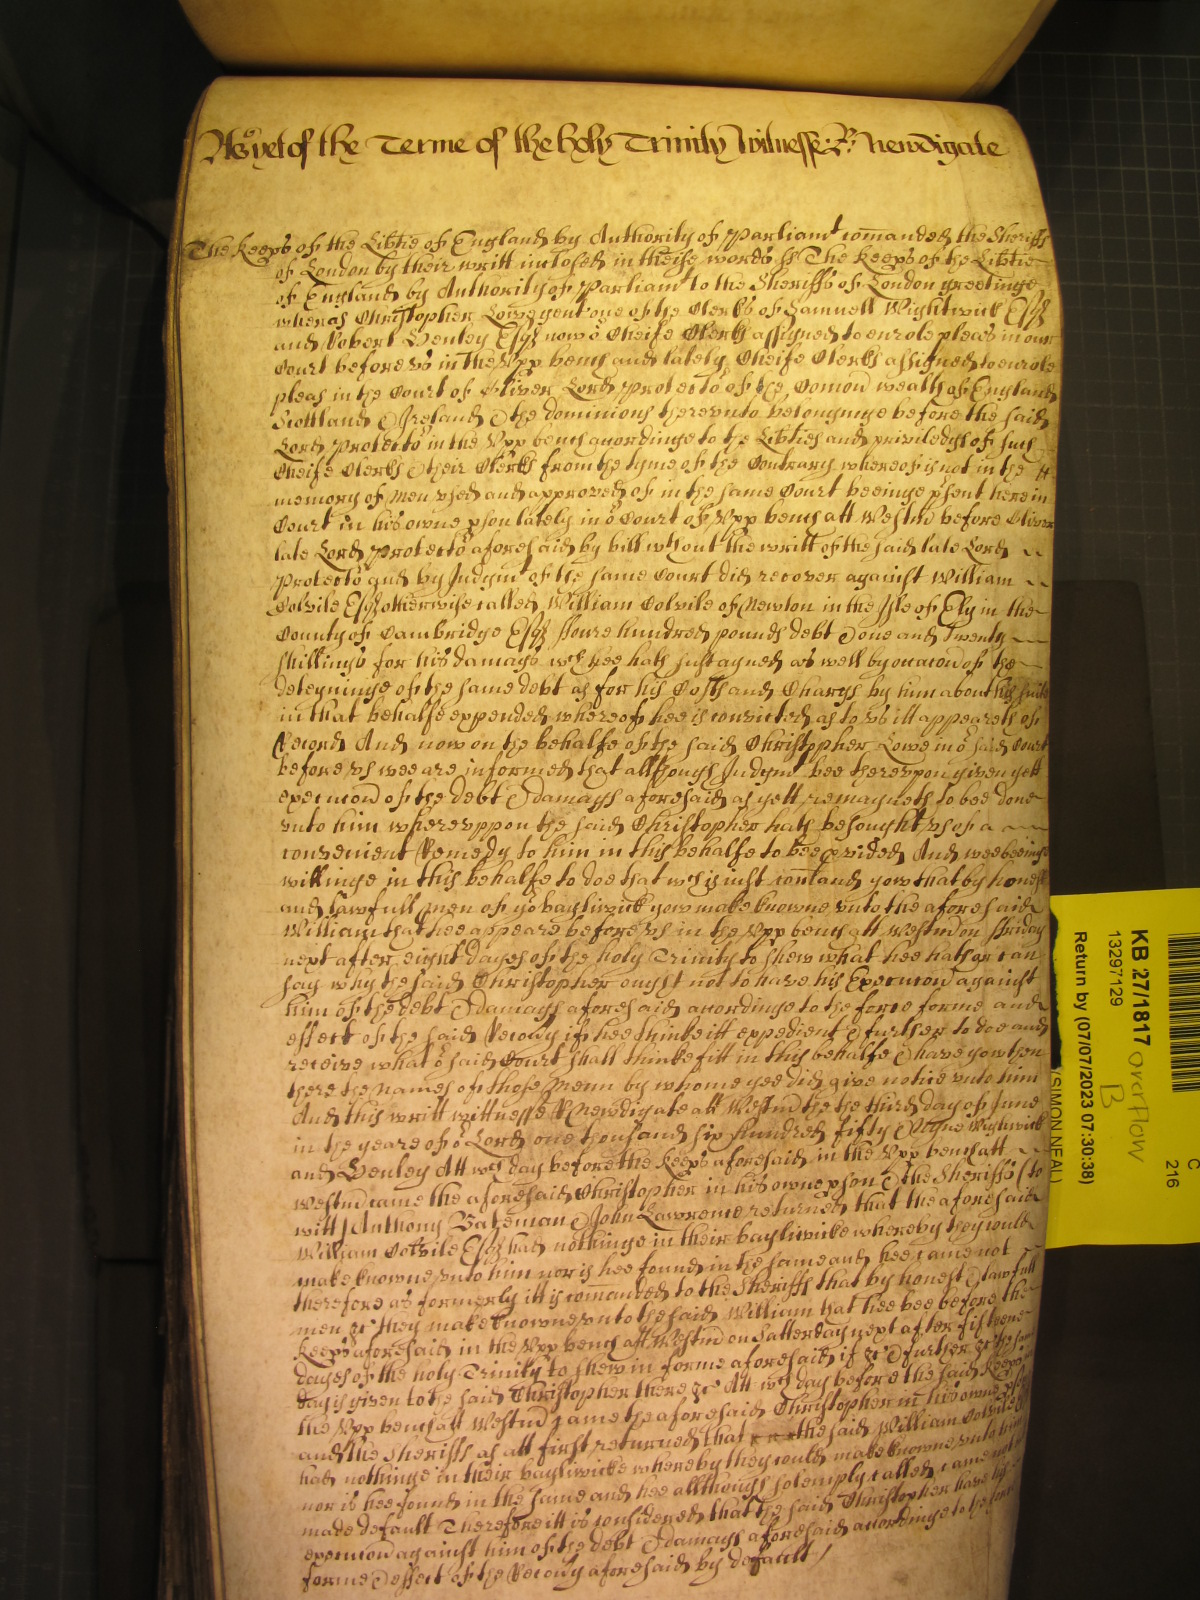 As yet of the Terme of the holy Trinity Witnesse R: Newdigate
The Keeps of the Libtie of England by Authority of Parliamt comanded the Sheriffs
of London by their writt inclosed in theise words ss The Keeps of the Libtie
of England by Authority of Parliamt to the Sheriffs of London greetinge
wheras Christopher Lowe gent one of the Clerks of Samuell Wightwick Esqr
and Robert Henley Esqr now or Cheife Clerks assigned to enrole pleas in our
Court before us in the Upp bench and lately Cheife Clerks assigned to enrole
pleas in the Court of Oliver Lord Protector of the Comon wealth of England
Scottland & Ireland & the dominions thereunto belonginge before the said
Lord Protector in the Upp bench accordinge to the Libties and priviledgs of such
Cheife Clerks & their Clerks from the tyme of the Contrary whereof is not in the
memory of Men used and approved of in the same Court beeinge psent here in
Court in his owne pson lately in or Court of Upp bench att Westmr before Oliver
late Lord Protector aforesaid by bill wthout the writt of the said late Lord
Protector and by Judgmt of the same Court did recover against William
Colvile Esqr otherwise called William Colvile of Newton in the Isle of Ely in the
County of Cambridge Esqr ffoure hundred pounds debt & one and Twenty
shillings for his damags wch hee hath sustayned as well by occacon of the
deteyninge of the same debt as for his Costs and Chargs by him about his suite
in that behalfe expended whereof hee is convicted as to us itt appeareth of
Record And now on the behalfe of the said Christopher Lowe in or said Court
before us wee are informed that allthough Judgmt bee thereupon given yett
execucon of the debt & damags aforesaid as yett remayneth to bee done
unto him whereuppon the said Christopher hath besought us of a
convenient Remedy to him in this behalfe to bee pvided And wee beeinge
willinge in this behalfe to doe that wch is iust comand yow that by honest
and lawfull Men of yor bayliwick yow make knowne unto the aforesaid
William that hee appeare before us in the Upp bench att Westmr on ffriday
next after eight dayes of the holy Trinity to shew what hee hath or can
say why the said Christopher ought not to have his Execucon against
him of the debt & damags aforesaid accordinge to the force forme and
effect of the said Recovy if hee thinke itt expedient & further to doe and
receive what or said Court shall thinke fitt in this behalfe & have yow then
there the names of those Menn by whome yee did give notice unto him
And this writt wittnesse R Newdigate att Westmr the the third day of June
in the yeare of or Lord one thousand six hundred fifty & Nyne Wightwick
and Henley Att wch day before the Keeps aforesaid in the Upp bench att
Westmr came the aforesaid Christopher in his owne pson & the Sheriffs (to
witt) Anthony Bateman & John Lawrence returned that the aforesaid
William Colvile Esqr had nothinge in their bayliwicke whereby they could
make knowne unto him nor is hee found in the same and hee came not
therefore as formerly itt is comanded to the Sheriffs that by honest & lawfull
men &c they make knowne unto the said William that hee bee before the
Keeps aforesaid in the Upp bench att Westmr on Satterday next after fifteene
dayes of the holy Trinity to shew in forme aforesaid if &c & further &c the same
day is given to the said Christopher there &c Att wch day before the said Keeps in
the Upp bench att Westmr came the aforesaid Christopher in his owne pson
and the Sheriffs as att first returned that the said William Colvile
had nothinge in their bayliwicke whereby they could make knowne unto him
nor is hee found in the same and hee allthough solemply called came not
made default Therefore itt is considered that the said Christopher have his
execucon against him of the debt & damags aforesaid accordinge to the force
forme & effect of the Recovy aforesaid by default /
KB 27/1817 overflow
13297129 B
Return by (07/07/2023 07:30:38)
(SIMON NEAL)
C
216